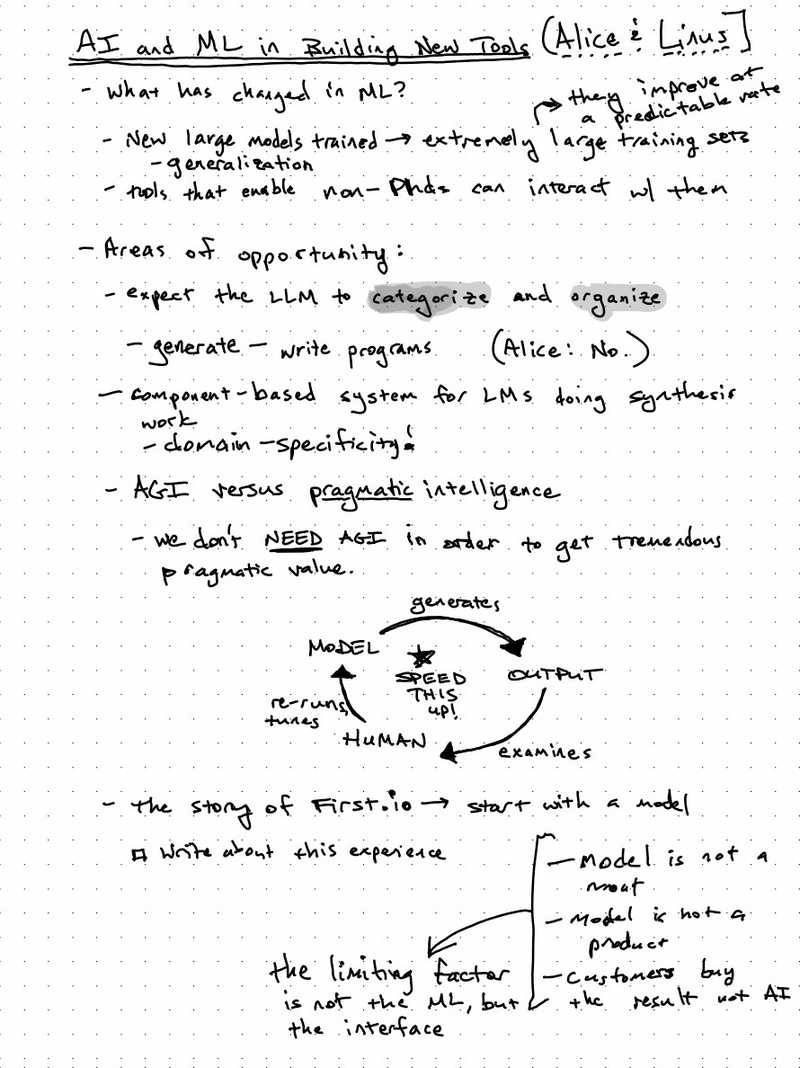 AI and ML in Building New Tools (Alice & Linus]
- What has changed in ML?
they improve at
a predictable rate
- New large models trained → extremely large training sets
- generalization
- tools that enable non-Phds can interact w/ them
- Areas of opportunity:
- expect the LLM to categorize and organize
- generate - write programs (Alice: No.)
- component-based system for LMs doing synthesis
work
- domain-specificity!
- AGI versus pragmatic intelligence
- we don't NEED AGI in order to get tremendous
pragmatic value.
generates
MODEL
OUTPUT
★
SPEED
THIS
UP!
re-runs,
tunes
HUMAN
examines
- the story of First.io → start with a model
□ Write about this experience
- Model is not a
moat
- Model is not a
product
- Customers buy
the result not AI
the limiting factor
is not the ML, but
the interface